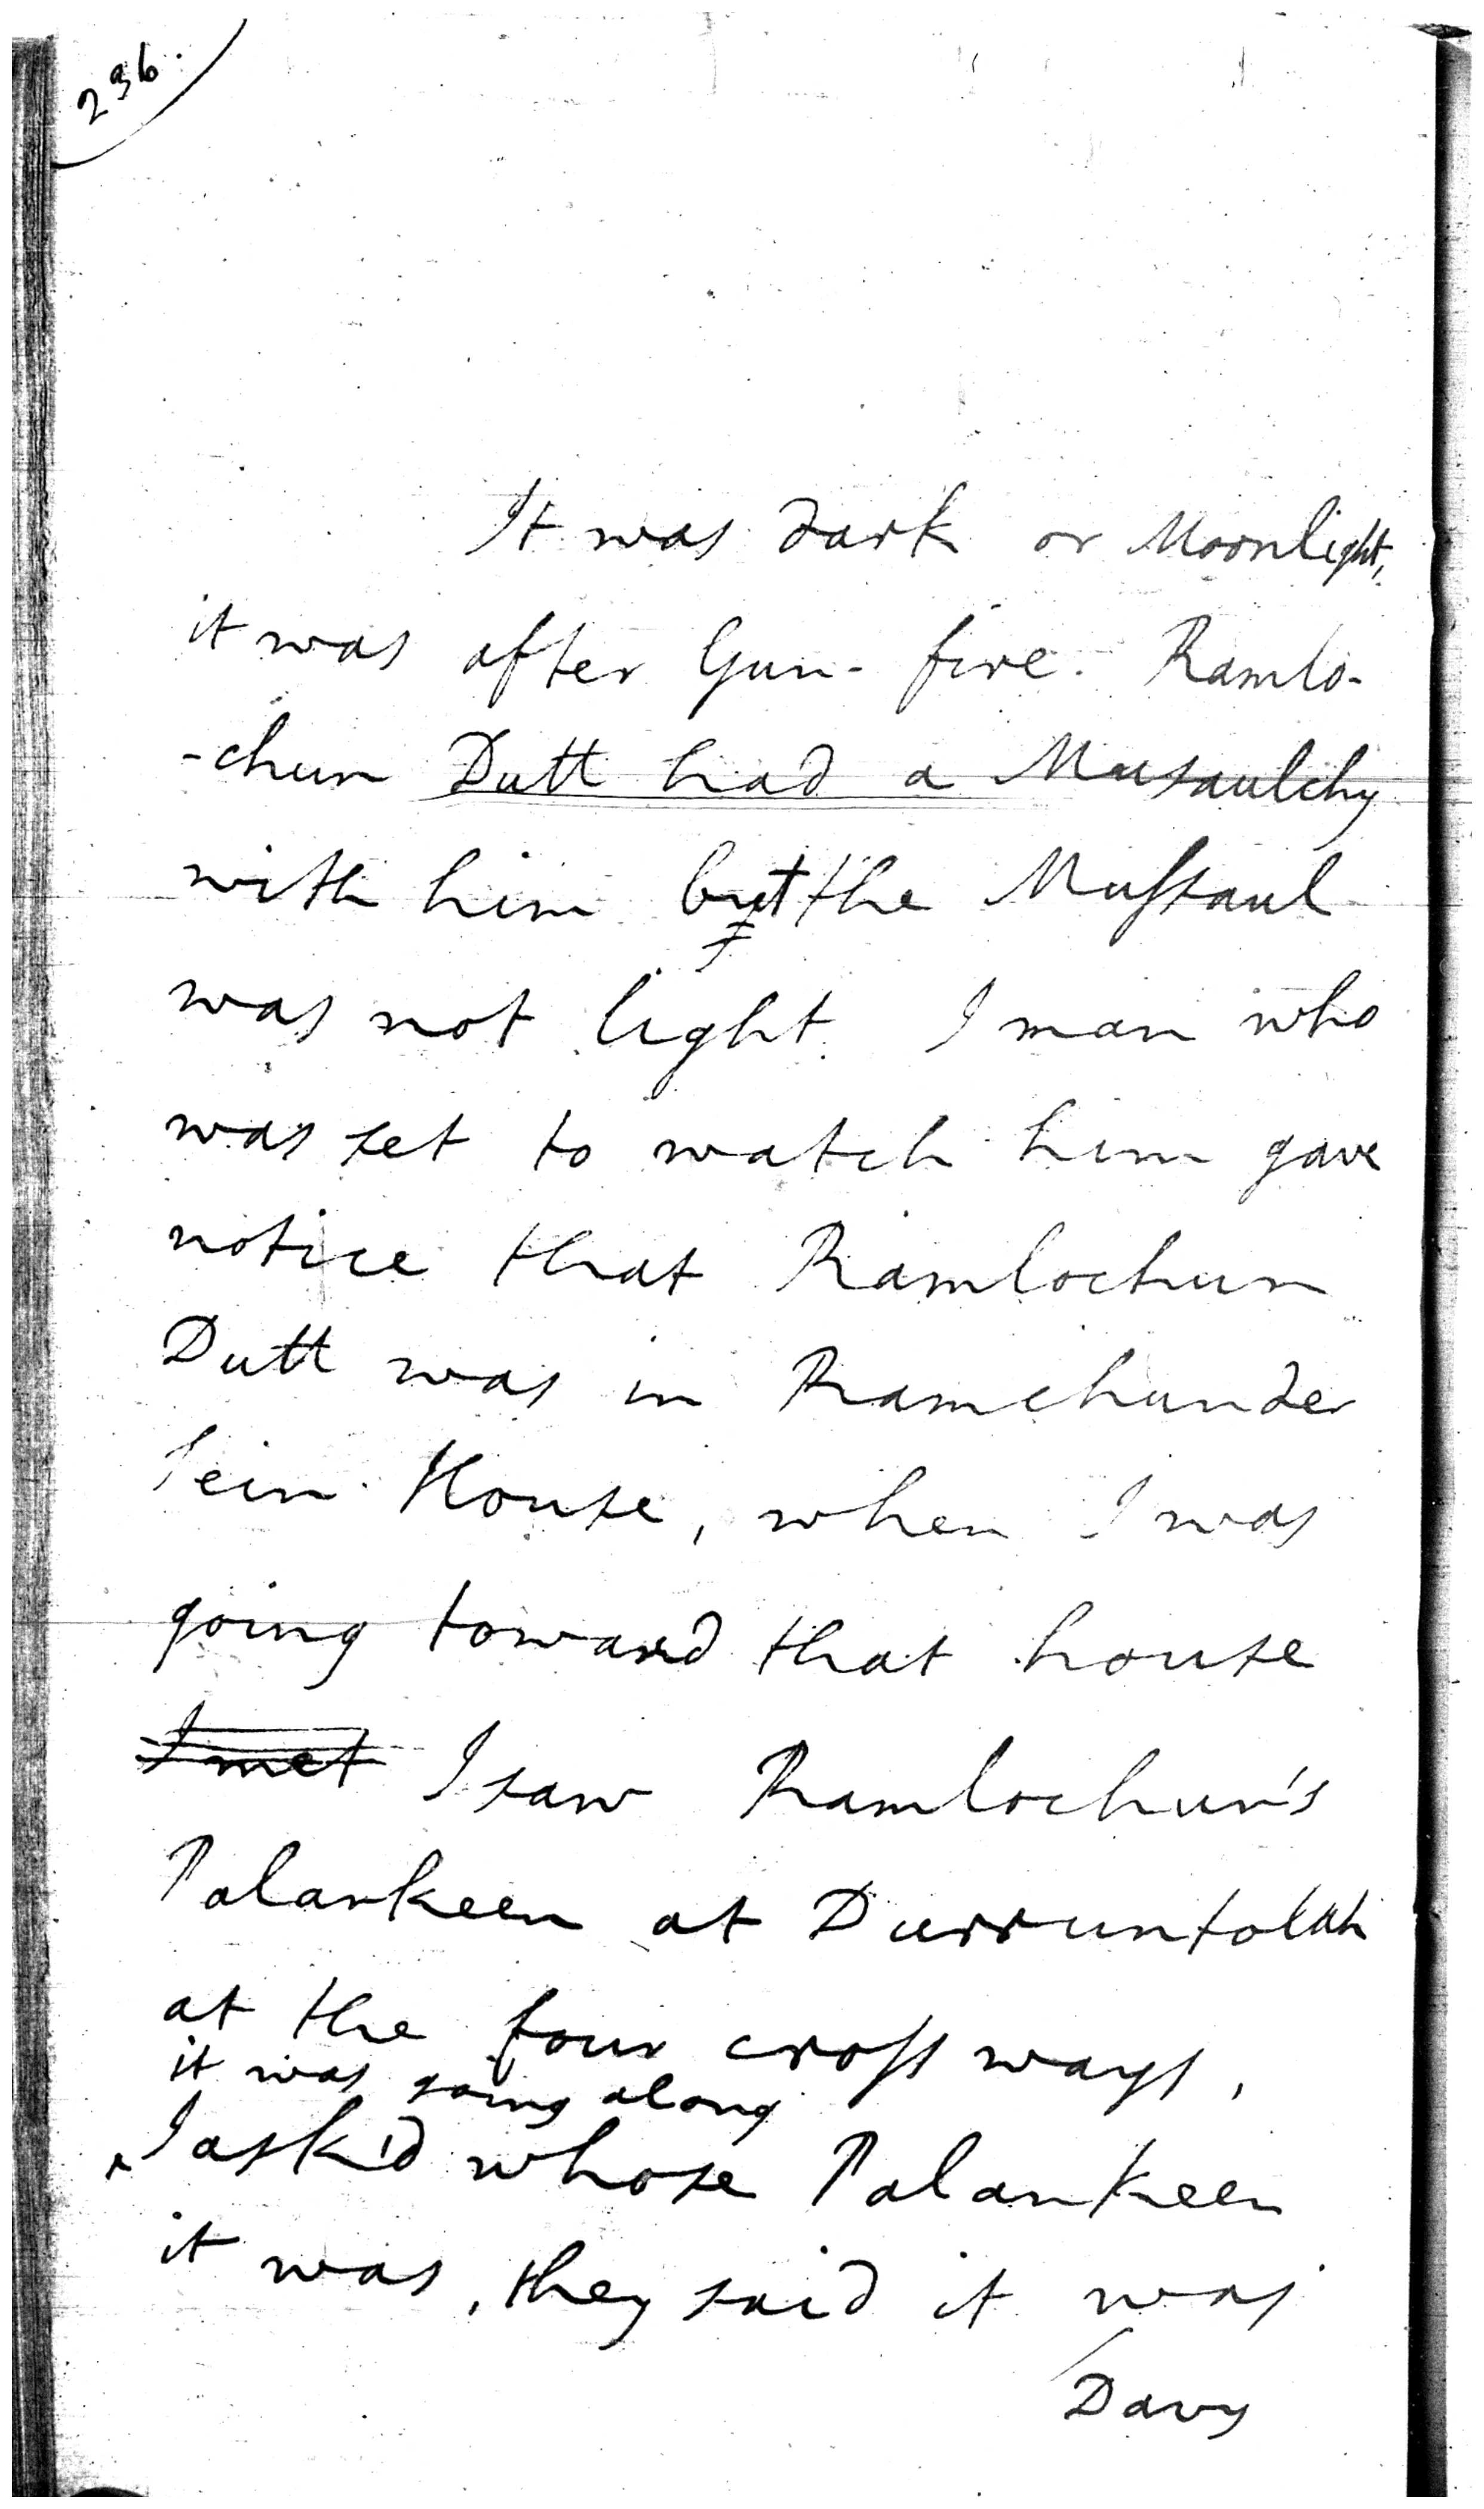 236.
It was dark or Moonlight,
it was after Gun-fire. Ramlo-
-chun Dutt had a Musaulchy
with him but the Mussaul
was not light. I man who
was set to watch him gave
notice that Ramlochun
Dutt was in Ramchunder
Sein House, when I was
going toward that house
I met I saw Ramlochun's
Palankeen at Durruntolah
at the four cross ways,
it was going along
I ask'd whose Palankeen
it was, they said it was
Davy